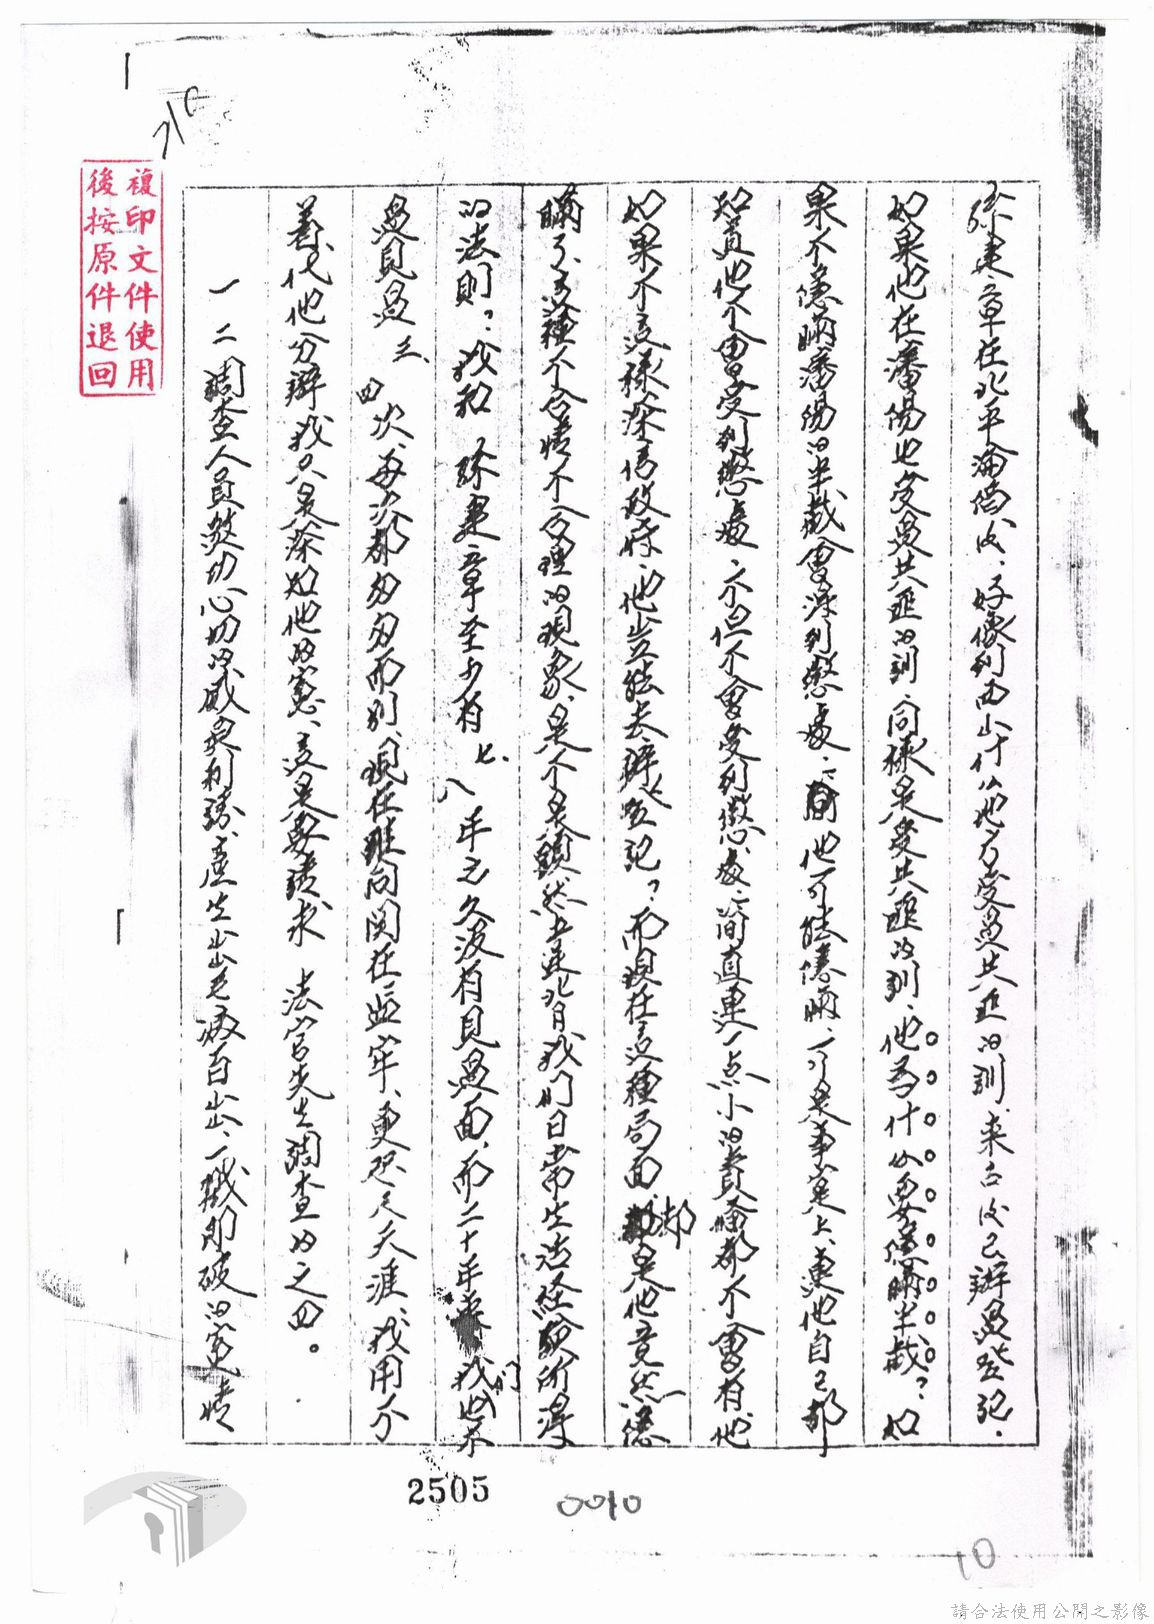 孫建章在北平淪陷後、好像到西山什么地方受過共匪的訓、来台後已辦過登記.
如果他在瀋陽也受過共匪的訓、同樣是受共匪的訓、他為什么要隱瞞半截?、如
果不隱瞞瀋陽的半截會得到懲處、簡他可能隱瞞、可是事實上、連他自己都
知道他不會受到懲處、不但不會受到懲處、簡直連一点小的責備都不會有、他
如果不這樣深信政府、他豈能去辦登記?、而現在這種局面、却是他竟然隱
瞞了、這種不合情不合理的現象、是不是顯然违背我们日常生活経験所得
的法則?、我和 孫建章至少有七、八年之久没有見過面、而二十年來我们也不
過見過三、四次、每次都匆匆而别、現在 同関在一 監牢、更咫尺天涯、我用不
着代他分辯我只是深知他的冤、這是要請求 法官先生調查的之四。
一 二調查人員 功心切的威 利誘、產生出 病百出、一戳即破的案情
複印文件使用
後按原件退回
210
2505
0010
10
請合法使用公開之影像